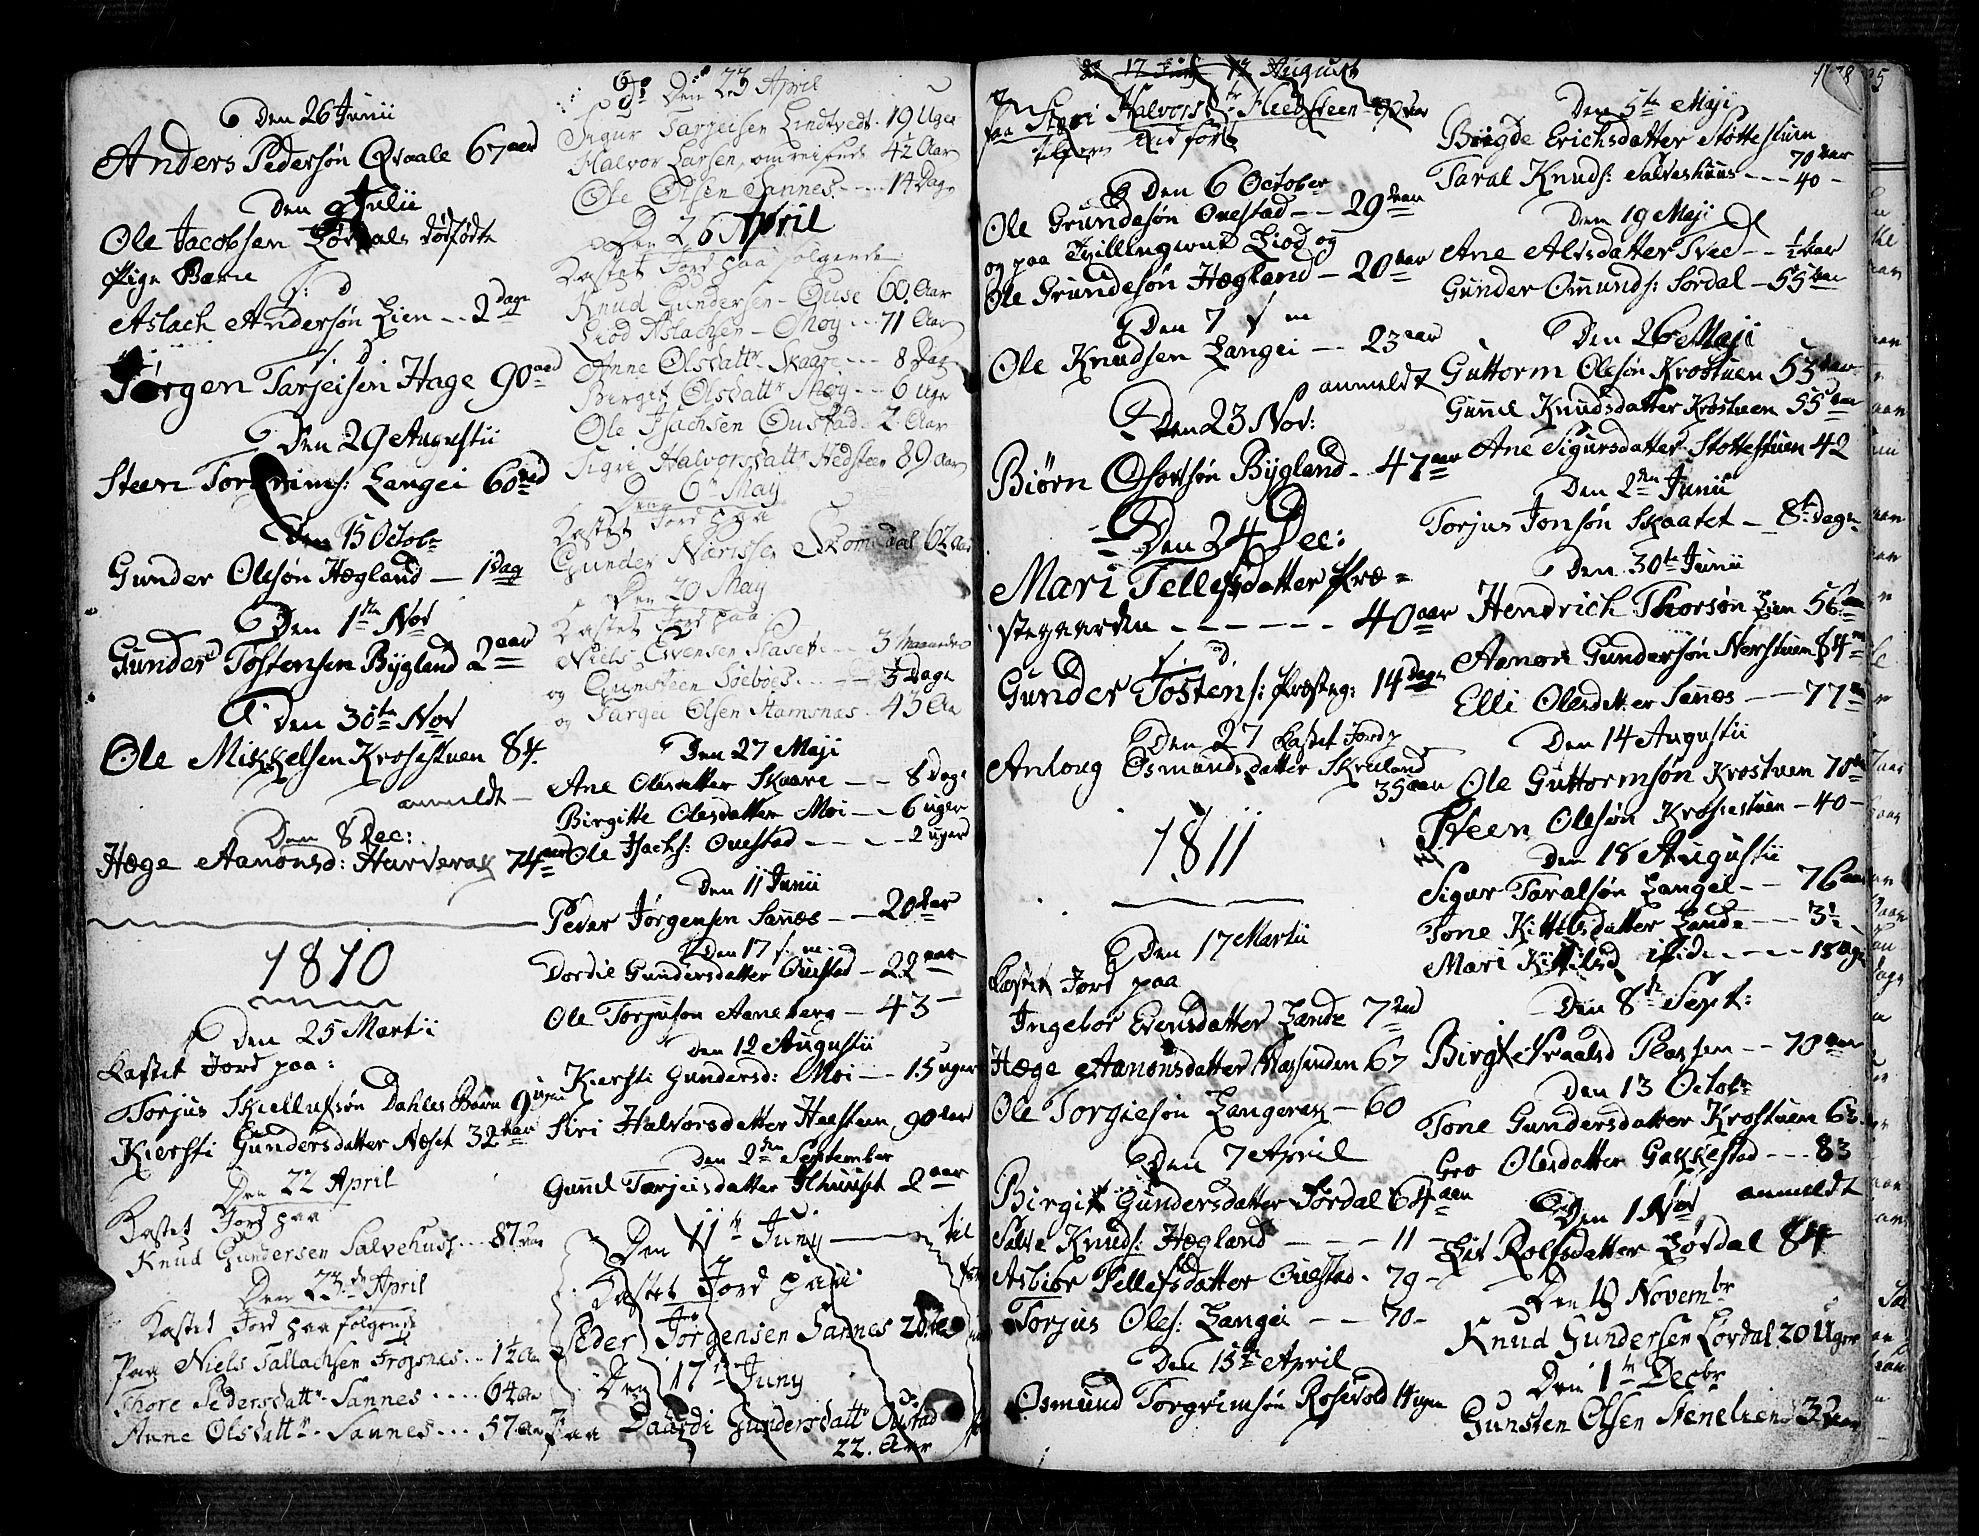 Den 26 Junii
Anders Pedersøn Qvaale 67 aar
Den Julii
Ole Jacobsen Lørdals dødfødte
Pige Barn
s: d
Aslach Andersøn Lien -- 2 dage
s. d
Jørgen Tarjeisen Hage 90 aar
Den 29 Augustii
Steen Torgrims: Langei 60
Den 15 Octobr
Gunder Olesøn Hægland -- 1 dag
Den 1ste Nov
Gunder Tostensen Bygland 2 aar
Den 30te Nov
Ole Mikkelsen Krosestuen 84.
anmeldt
Den 8 Dec:
Hæge Aanonsd: Hurverak 74 aar
1810
Den 25 Martii
Kastet Jord paa:
Torjus Skiellufsøn Dahles Barn 9 uger
Kiersti Gundersdatter Næset 32 aar
Den 22 April
Kastet Jord paa
Knud Gundersen Salvehuss --- 87 aar
Den 23de April
Kastet Jord paa følgende
Paa Niels Tallachsen Frøjsnes -- 1½ aar
Thore Pedersdattr - Sannes ---- 64 aar
Anne Olsdattr - Sannes --- 57 aar
Den 23 April
Sigur Tarjeisen Lindtvedt - 19 Uger
Halvor Larsen, omreisende 42 Aar
Ole Olsen Sannes ---- 14 Dage
Den 26 April
Kastet Jord paa følgende
Knud Gundersen - Ouse 60. Aar
Liod Aslachsen - Moy -- 71 Aar
Anne Olsdattr - Skaare --- 8 Dage
Birgit Olsdattr Moy --- 6 Uger
Ole Isachsen Oustad - 2. Aar
Sigri Halvorsdattr Hedsteen 89 Aar
Den 6te May
Kastet Jord paa
Gunder Skomedal 62 Aar
Den 20 May
Kastet Jord paa
Niels Evensen --- 3 Maaneder
og Gunsteen Søeboes --- 3 Dage
og Targei Olsen Stamsnæs - 43 Aar
Den 27 Maji
Ane Olesdatter Skaare -- 8 Dage
Birgitte Olesdatter Moi -- 6 uger
Ole Isachs: Ouestad ---- 2 uger
Den 11 Junii
Peder Jørgensen Sannæs -- 20 Aar
Den 17 s. m.
Dordie Gundersdatter Ouestad - 22 aar
Ole Torjusøn Aaneberg - 43 -
Den 12 Augustii
Kiersti Gundersd: Moi -- 15 uger
Siri Halvorsdatter Heesteen 90 aar
Den 2den September
Gunil Tarjeisdatter 2 aar
Den 11te Juny -- til
Kastet Jord paa
Peder Jørgensen Sannes 20
Den 17de Juny
Paa Daardi Gundersdattr Oustad
22. Aar
17 Juny 12 August
paa Siri Halvorsdtr Heedsteen 90 aar
Den 6 October
Ole Grundesøn Ouestad -- 29 aar
og paa Tvillingerne Liod og
Ole Grundesøn Hægland - 20 aar
Den 7 s m
Ole Knudsen Langei -- 23 aar
anmeldt
Den 23 Nov:
Biørn Olsøn Bygland - 47 aar
Den 24 Dec:
Mari Tellefsdatter Præ=
stegaarden ------ 40 aar
s. d.
Gunder Tostens: Præsteg: 14 dage
Den 27 Kastet Jord p
Anloug Osmundsdatter Skreiland
35 aar
1811
Den 17 Martii
Kastet Jord paa
Ingebor Evensdatter Lande 7 aar
Hæge Aanonsdatter 67
Ole Torgiesøn Langerak - 60
Den 7 April
Birgit Gundersdatter Lørdal 64 aar
Salve Knuds: Hægland --- 11 -
Asbiør Tellefsdatter Ouestad - 79 -
Torjus Oles: Langei -- 70 -
Den 15de April
Osmund Torgrimsøn Rosevold 14 uger
Den 5te Maji
Birgde Erichsdatter Støttestuen
70 aar
Taral Knuds: Salveshuus --- 40 -
Den 19 Maji
Ane Alvsdatter Tvet -- ½ aar
Gunder Omunds: Lordal - 55 aar
Den 26 Maji
Guttorm Olesøn Krostuen 53 aar
Gunil Knudsdatter Krostuen 55 aar
Ane Sigursdatter Støttestuen 42
Den 2den Junii
Torjus Jonsøn Skaatet -- 8te Dage
Den 30te Junii
Hendrich Thorsøn Lien 56 aar
Aanon Gundersøn Norstuen 84
Elli Olesdatter Sannæs -- 77
Den 14 Augustii
Ole Guttormsøn Krostuen 70 aar
Steen Olesøn Krosestuen - 40 -
Den 18 Augustii
Sigur Taralsøn Langei -- 76 aar
Tone Kittelsdatter Lande --- 3½
Mari Kittilsd ibid. ---- 18 uger
Den 8te Sept:
Birgit -- 70 aar
Den 13 Octobr
Tone Gundersdatter Krostuen 63
Gro Olesdatter Gakkestad --- 83
anmeldt
Den 1 Nov
Liv Rolfsdatter Lørdal 84
Den 10 Novembr
Knud Gundersen Lørdal 20 Uger
Den 1te Decbr
Gunsten Olsen Stenelien 32 aar